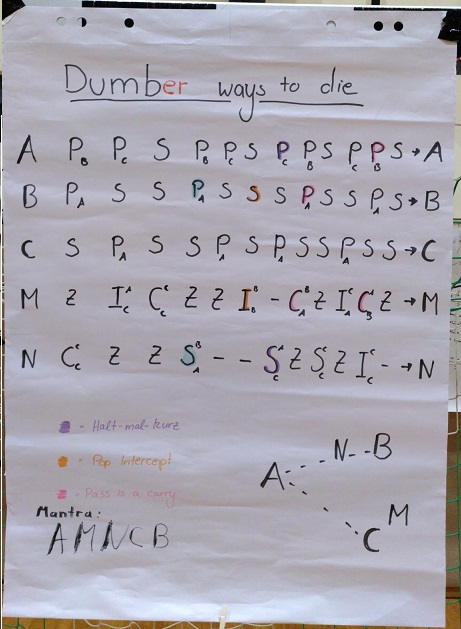 Dumber ways to die
A P_B P_C S P_B P_C S P_C P_B S P_C P_B S → A
B P_A S S P_A S S S P_A S S P_A S → B
C S P_A S S P_A S P_A S S P_A S S → C
M Z I^A_C C^C_C Z Z I^C_B - C^B_A Z I^C_A C^C_B Z → M
N C^C_C Z Z S^B_A - - S^A_C Z S^C_C Z I^C_C - → N
- Halt-mal-kurz
- Pop Intercept
- Pass is a carry
Mantra:
A M N C B
A N B
C M